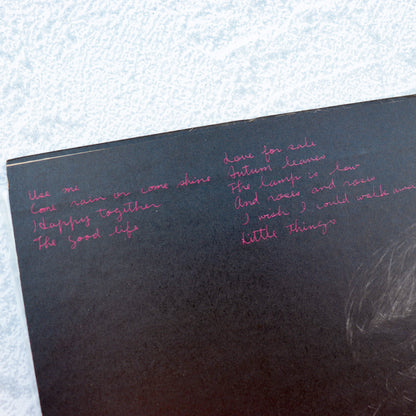 Use me
Come rain or come shine
Happy together
The good life
Love for sale
Autum leaves
The lamp is low
And roses and roses
I wish I could walk
Little Things